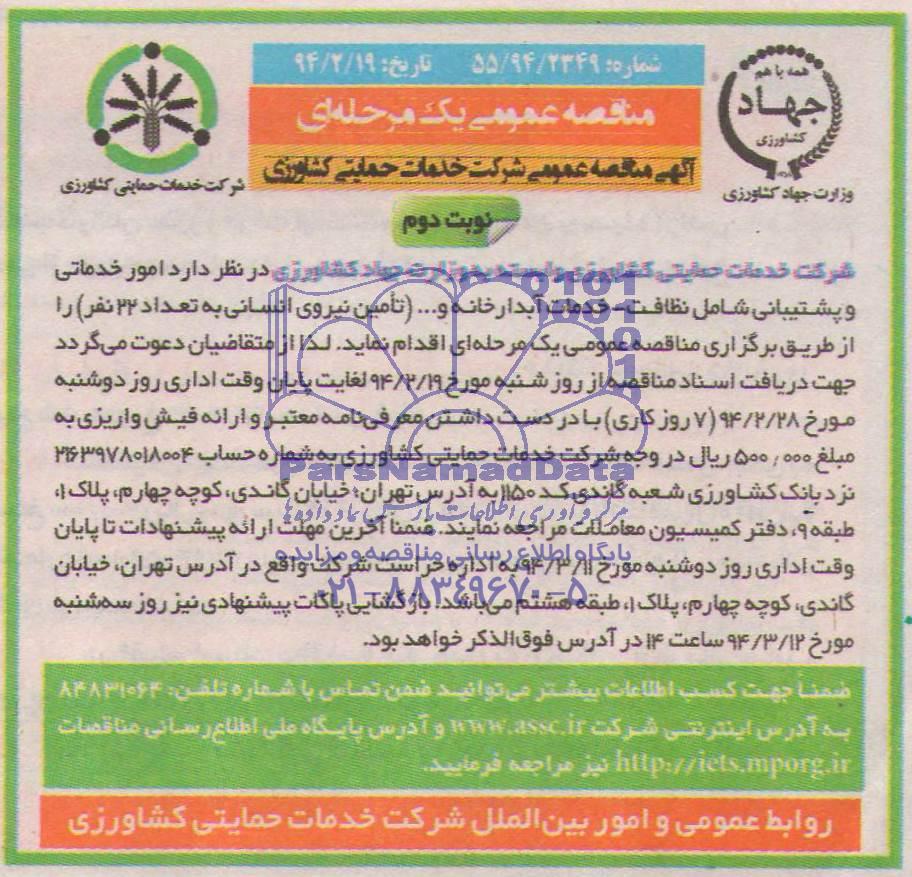 شماره: ۵۵/۹۴/۲۳۴۹ تاریخ: ۹۴/۲/۱۹
مناقصه عمومی یک مرحله‌ای
آگهی مناقصه عمومی شرکت خدمات حمایتی کشاورزی
همه با هم
جهاد
کشاورزی
وزارت جهاد کشاورزی
شرکت خدمات حمایتی کشاورزی
نوبت دوم
شرکت خدمات حمایتی کشاورزی وابسته به وزارت جهاد کشاورزی در نظر دارد امور خدماتی
و پشتیبانی شامل نظافت - خدمات آبدارخانه و... (تأمین نیروی انسانی به تعداد ۲۲ نفر) را
از طریق برگزاری مناقصه عمومی یک مرحله‌ای اقدام نماید. لذا از متقاضیان دعوت می‌گردد
جهت دریافت اسناد مناقصه از روز شنبه مورخ ۹۴/۲/۱۹ لغایت پایان وقت اداری روز دوشنبه
مورخ ۹۴/۲/۲۸ (۷ روز کاری) با در دست داشتن معرفی‌نامه معتبر و ارائه فیش واریزی به
مبلغ ۵۰۰,۰۰۰ ریال در وجه شرکت خدمات حمایتی کشاورزی به شماره حساب ۲۶۳۹۷۸۰۱۸۰۰۴
نزد بانک کشاورزی شعبه گاندی کد ۱۱۵۰ به آدرس تهران؛ خیابان گاندی، کوچه چهارم، پلاک ۱،
طبقه ۹، دفتر کمیسیون معاملات مراجعه نمایند. ضمنا آخرین مهلت ارائه پیشنهادات تا پایان
وقت اداری روز دوشنبه مورخ ۹۴/۳/۱۱ به اداره حراست شرکت واقع در آدرس تهران، خیابان
گاندی، کوچه چهارم، پلاک ۱، طبقه هشتم می‌باشد. بازگشایی پاکات پیشنهادی نیز روز سه‌شنبه
مورخ ۹۴/۳/۱۲ ساعت ۱۴ در آدرس فوق‌الذکر خواهد بود.
ParsNamadData
مرکز فرآوری اطلاعات پارس نماد داده‌ها
پایگاه اطلاع رسانی مناقصه و مزایده
۰۲۱-۸۸۳۴۹۶۷۰-۵
ضمناً جهت کسب اطلاعات بیشتر می‌توانید ضمن تماس با شماره تلفن: ۸۴۸۳۱۰۶۴
به آدرس اینترنتی شرکت www.assc.ir و آدرس پایگاه ملی اطلاع‌رسانی مناقصات
http://iets.mporg.ir نیز مراجعه فرمایید.
روابط عمومی و امور بین‌الملل شرکت خدمات حمایتی کشاورزی